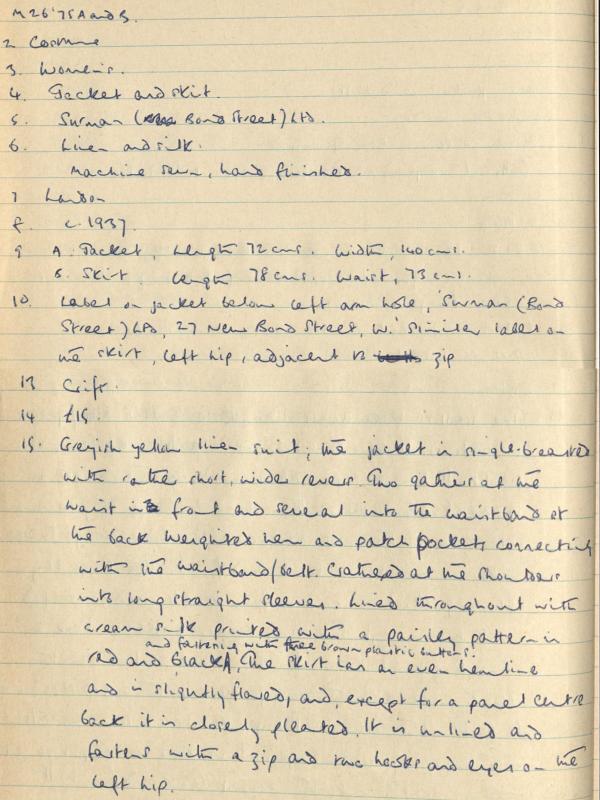 M 26'75 A and B.
2 Costume
3. Women's.
4. Jacket and skirt.
5. Surman (Bond Street) Ltd.
6. Linen and silk.
Machine sewn, hand finished.
7 London
8. c. 1937.
9 A. Jacket, length 72 cms. Width, 140 cms.
B. Skirt. Length 78 cms. Waist, 73 cms.
10. Label on jacket below left arm hole, 'Surman (Bond
Street) Ltd, 27 New Bond Street, W.' Similar label on
the skirt, left hip, adjacent to zip
13 Gift.
14 £15.
15. Greyish yellow linen suit; the jacket is single-breasted
with rather short, wide revers. Two gathers at the
waist in front and several into the waistband at
the back weighted hem and patch pockets connecting
with the waistband/belt. Gathered at the shoulders
into long straight sleeves. Lined throughout with
cream silk printed with a paisley pattern in
and fastening with three brown plastic buttons.
red and black. The skirt has an even hemline
and is slightly flared, and, except for a panel centre
back it is closely pleated. It is unlined and
fastens with a zip and two hooks and eyes on the
left hip.